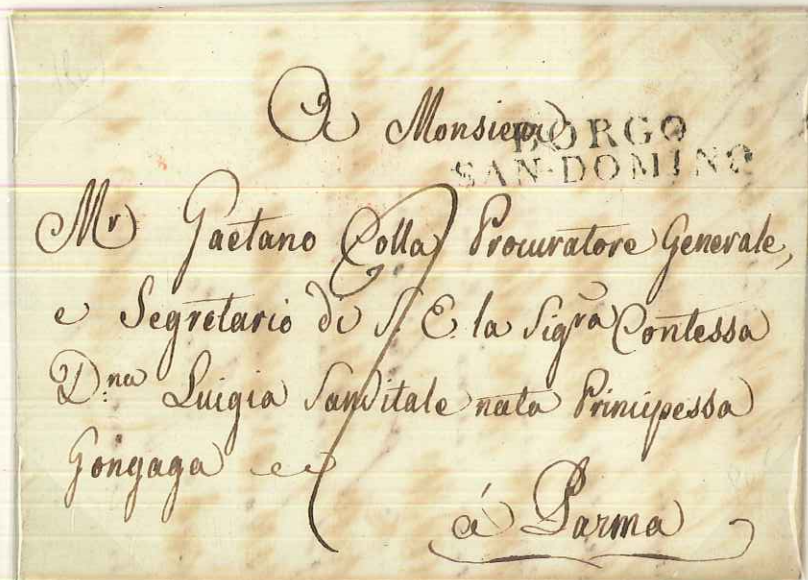 A Monsieur
BORGO
SAN-DOMINO
Mr Gaetano Colla Procuratore Generale,
e Segretario di S. E. la Sigra Contessa
D.na Luigia Sanvitale nata Principessa
Gongaga
á Parma